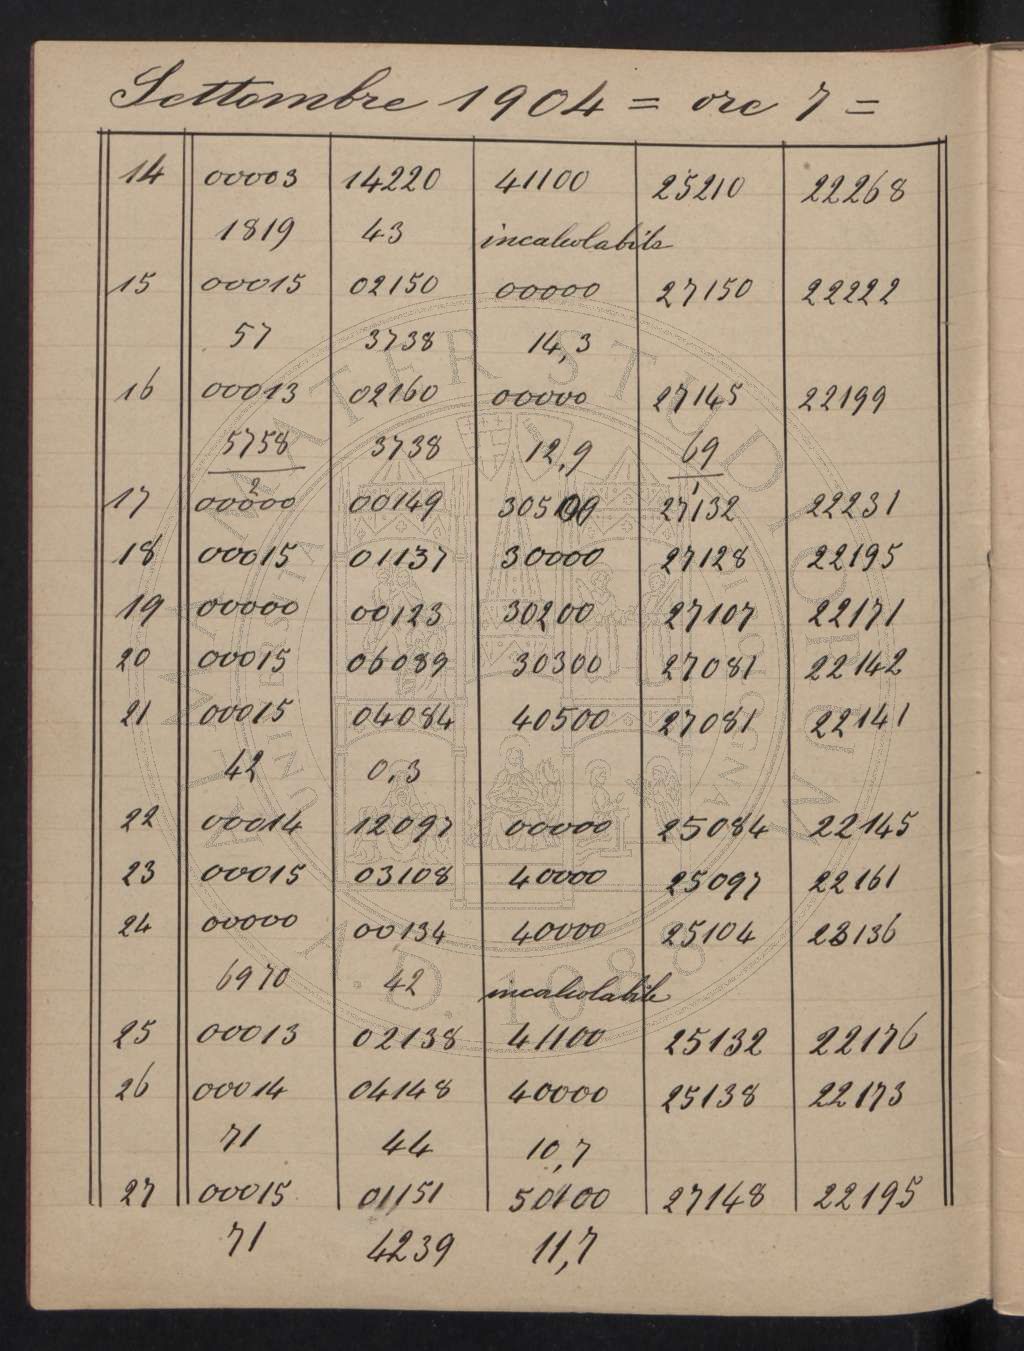 Settembre 1904 = ore 7 =
14 00003 14220 41100 25210 22268
1819 43 incalcolabile
15 00015 02150 00000 27150 22222
57 3738 14,3
16 00013 02160 00000 27145 22199
5758 3738 12,9 69
2
17 00000 00149 30500 27132 22231
18 00015 01137 30000 27128 22195
19 00000 00123 30200 27107 22171
20 00015 06089 30300 27081 22142
21 00015 04084 40500 27081 22141
42 0,3
22 00014 12097 00000 25084 22145
23 00015 03108 40000 25097 22161
24 00000 00134 40000 25104 23136
6970 42 incalcolabile
25 00013 02138 41100 25132 22176
26 00014 04148 40000 25138 22173
71 44 10,7
27 00015 01151 50100 27148 22195
71 4239 11,7
ALMA MATER STUDIORUM
A.D. 1088